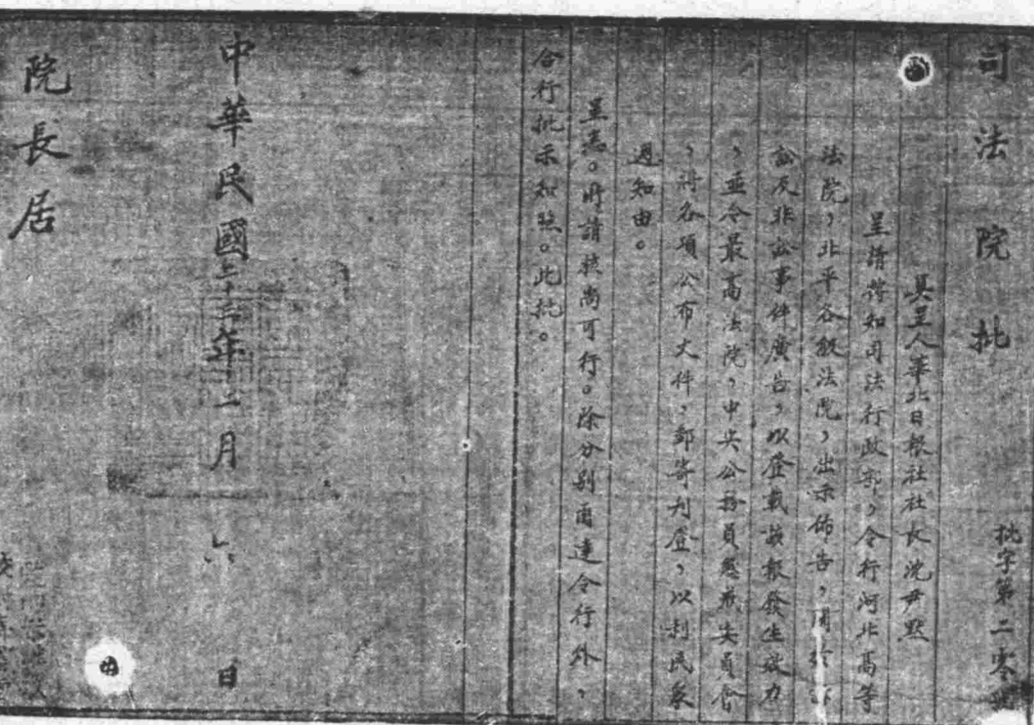 司法院批
批字第二零號
具呈人華北日報社社長沈尹默
呈請轉知司法行政部，令行河北高等
法院，北平各級法院，出示佈告，關於訴
訟及非訟事件廣告，以登載該報發生效力
，並令最高法院，中央公務員懲戒委員會
，將各項公布文件，郵寄刊登，以利民眾
週知由。
呈悉。所請核尚可行。除分別函達令行外，
合行批示知照。此批。
中華民國二十 年二月六日
院長居